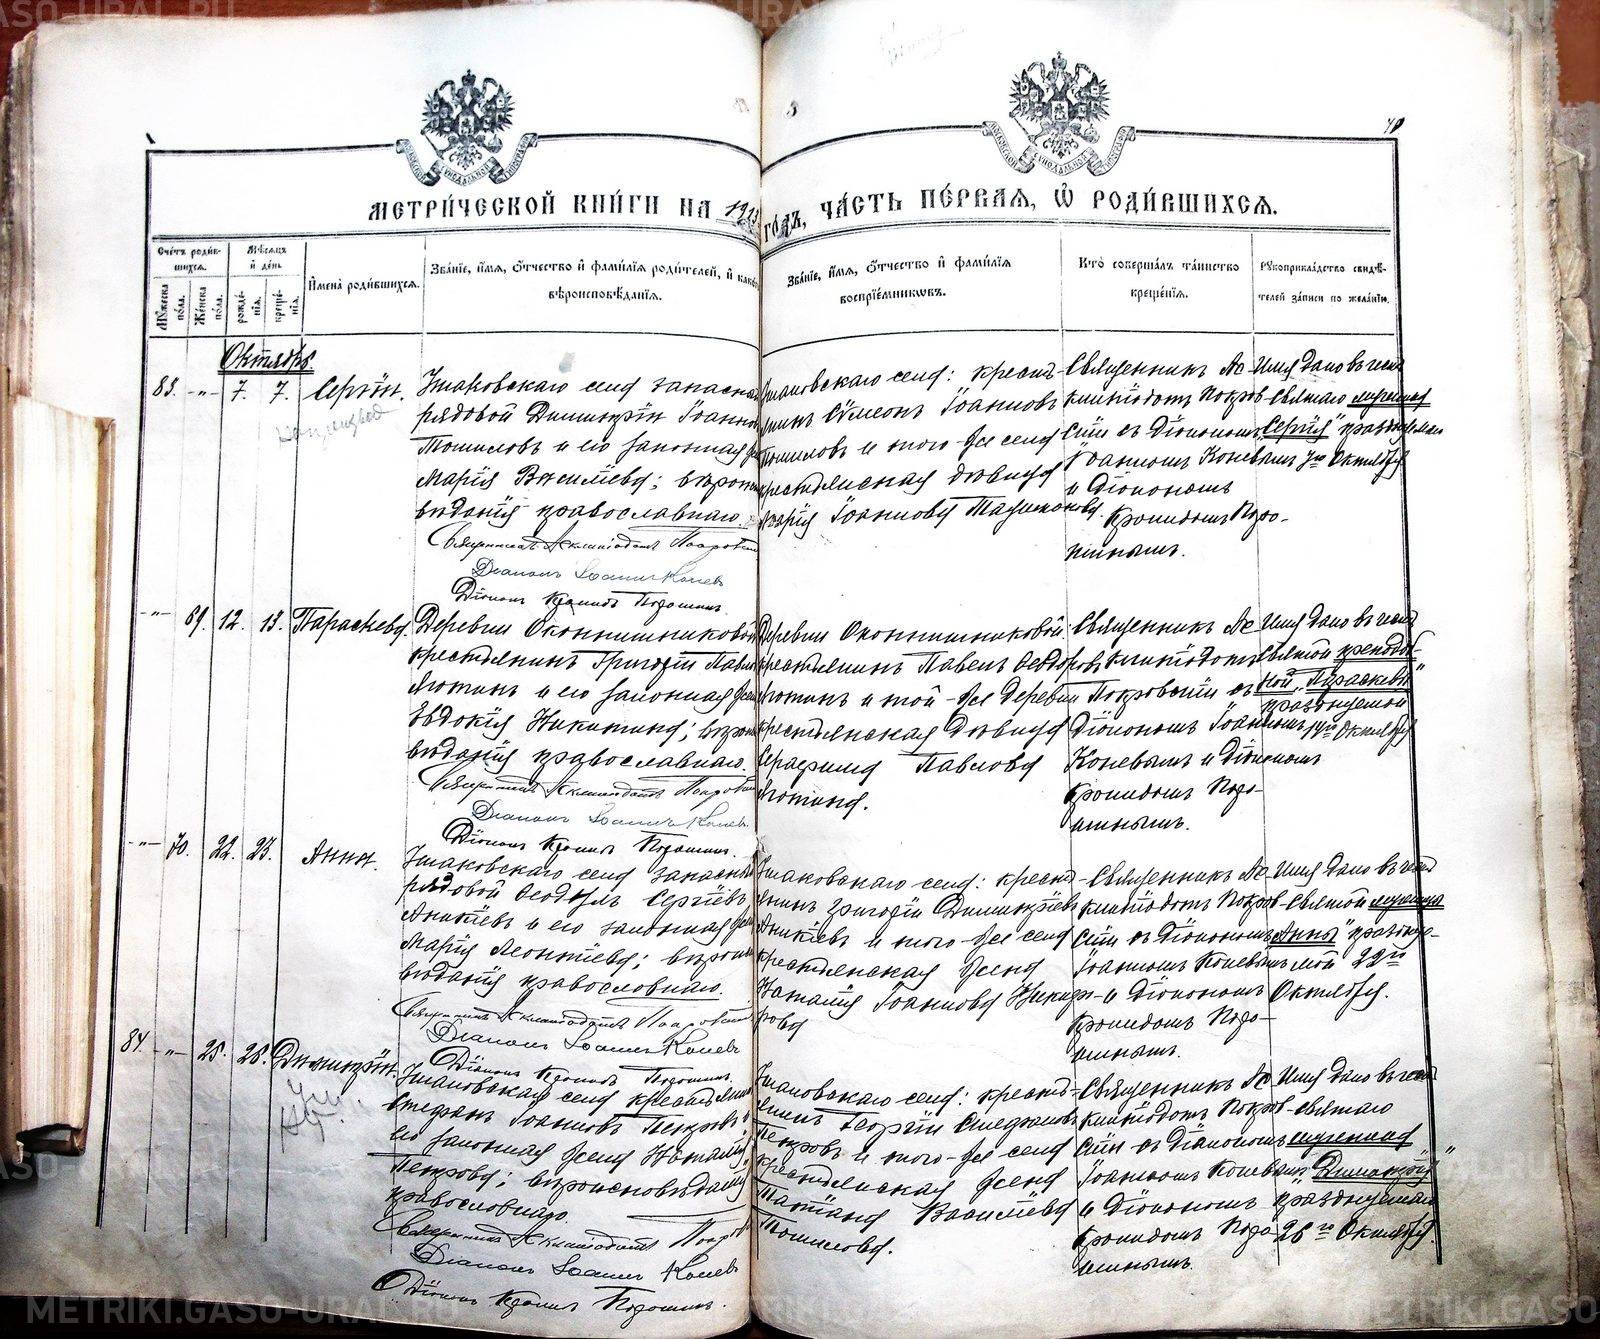 METRIKI.GASO-URAL.RU
МЕТРИ́ЧЕСКОЙ КНИ́ГИ НА 1913 ГО́ДЪ, ЧА́СТЬ ПЕ́РВАЯ, Ѡ҆ РОДИ́ВШИХСЯ.
Сче́тъ роди́вшихся.
Мꙋ́жеска по́ла.
Же́нска по́ла.
Мѣ́сяцъ и҆ де́нь
рожде́нїя.
креще́нїя.
И҆мена̀ роди́вшихся.
Зва́нїе, и҆́мя, ѻ҆́тчество и҆ фами́лїя роди́телей, и҆ како́го
вѣроисповѣ́данїя.
Зва́нїе, и҆́мя, ѻ҆́тчество и҆ фами́лїя
воспрїе́мниковъ.
Кто̀ соверша́лъ та́инство
креще́нїя.
Рꙋкоприкла́дство свидѣ́-
телей за́писи по жела́нїю.
Октябрь.
83. -"- 7. 7. Сергій.
запасный
рядовой Димитрій Іоанновъ
Томиловъ и его законная жена
Марія Василіева; вѣроиспо-
вѣданія православнаго.
Священникъ Аклиподотъ Покровскій
Діаконъ Іоаннъ Коневъ
Діаконъ Кронидъ Порошинъ.
села: кресть-
янинъ Сѵмеонъ Іоанновъ
Томиловъ и того-же села
крестьянская дѣвица
Марія Іоаннова
Священникъ Ак-
Покров-
скій съ Діакономъ
Іоанномъ Коневымъ
и Діакономъ
Кронидомъ Поро-
шинымъ.
Имя дано въ честь
святаго мученика
"Сергія" празднуемаго
7го Октября
-"- 69. 12. 13. Параскева.
Деревни
крестьянинъ Григорій Павловъ
и его законная жена
Евдокія Никитина; вѣроиспо-
вѣданія православнаго.
Священникъ Аклиподотъ Покровскій
Діаконъ Іоаннъ Коневъ.
Діаконъ Кронидъ Порошинъ.
Деревни
крестьянинъ Павелъ Ѳеодоровъ
и той-же деревни
крестьянская дѣвица
Серафима Павлова
Священникъ Ак-
Покровскій съ
Діакономъ Іоанномъ
Коневымъ и Діакономъ
Кронидомъ Поро-
шинымъ.
Имя дано въ честь
святой преподоб-
ной "Параскевы"
празднуемой
14го Октября
-"- 70. 22. 23. Анна.
села запасный
рядовой Ѳеодулъ Сергіевъ
Аникіевъ и его законная жена
Марія Леонтіева; вѣроиспо-
вѣданія православнаго.
Священникъ Аклиподотъ Покровскій
Діаконъ Іоаннъ Коневъ
Діаконъ Кронидъ Порошинъ.
села: кресть-
янинъ Григорій Димитріевъ
Аникіевъ и того-же села
крестьянская жена
Наталія Іоаннова Никифо-
рова
Священникъ Ак-
Покров-
скій съ Діакономъ
Іоанномъ Коневымъ
и Діакономъ
Кронидомъ Поро-
шинымъ.
Имя дано въ честь
святой мученицы
"Анны" праздну-
емой 22го
Октября.
84. -"- 25. 26. Димитрій.
села крестьянинъ
Стефанъ Іоанновъ Петровъ и
его законная жена Наталія
Петрова; вѣроисповѣданія
православнаго.
Священникъ Аклиподотъ Покровскій
Діаконъ Іоаннъ Коневъ
Діаконъ Кронидъ Порошинъ.
села: кресть-
янинъ Георгій Стефановъ
Петровъ и того-же села
крестьянская жена
Татіана Василіева
Томилова.
Священникъ Ак-
Покров-
скій съ Діакономъ
Іоанномъ Коневымъ
и Діакономъ
Кронидомъ Поро-
шинымъ.
Имя дано въ честь
святаго
мученика
"Димитрія"
празднуемаго
26го Октября.
METRIKI.GASO-URAL.RU